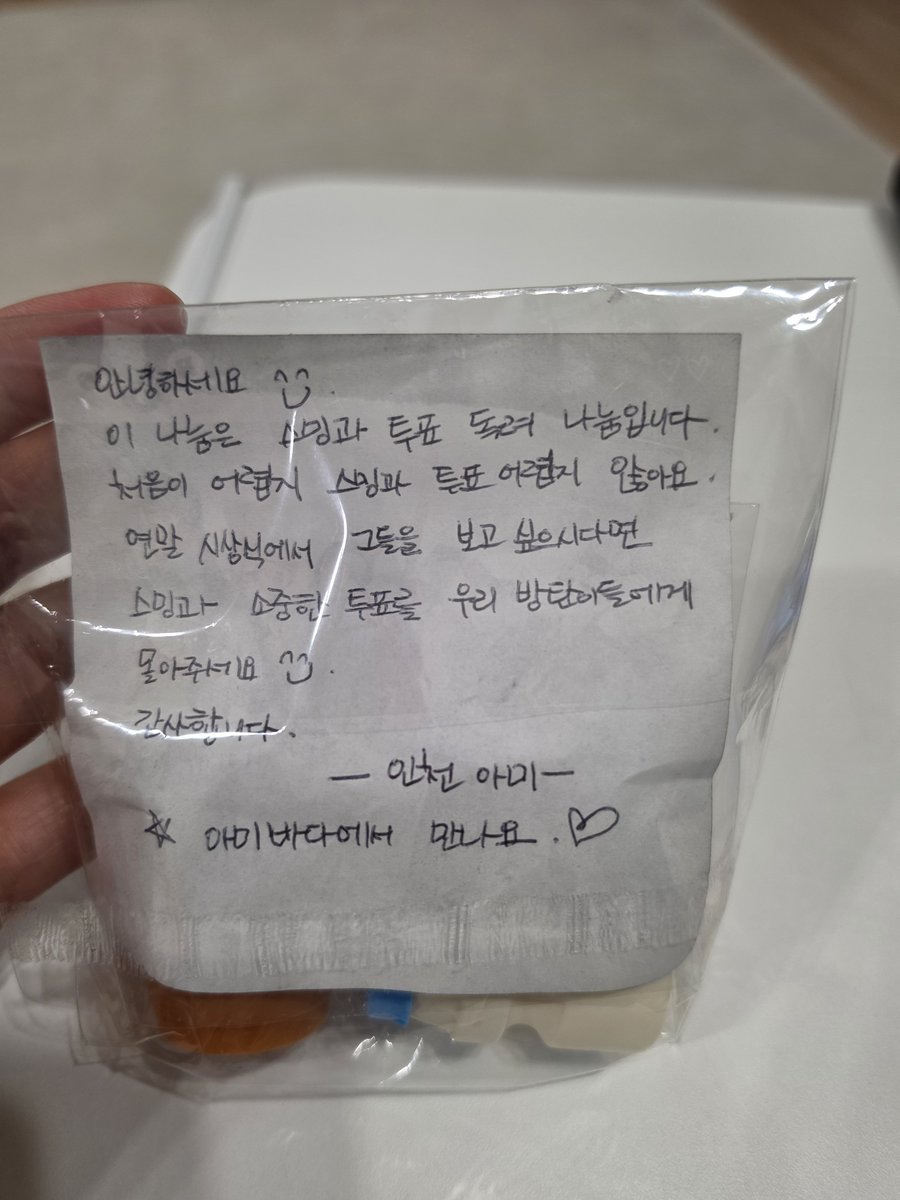 안녕하세요 ^^.
이 나눔은 스밍과 투표 독려 나눔입니다.
처음이 어렵지 스밍과 투표 어렵지 않아요.
연말 시상식에서 그들을 보고 싶으시다면
스밍과 소중한 투표를 우리 방탄이들에게
몰아주세요 ^^.
감사합니다.
— 인천 아미 —
☆ 아미바다에서 만나요. ♡